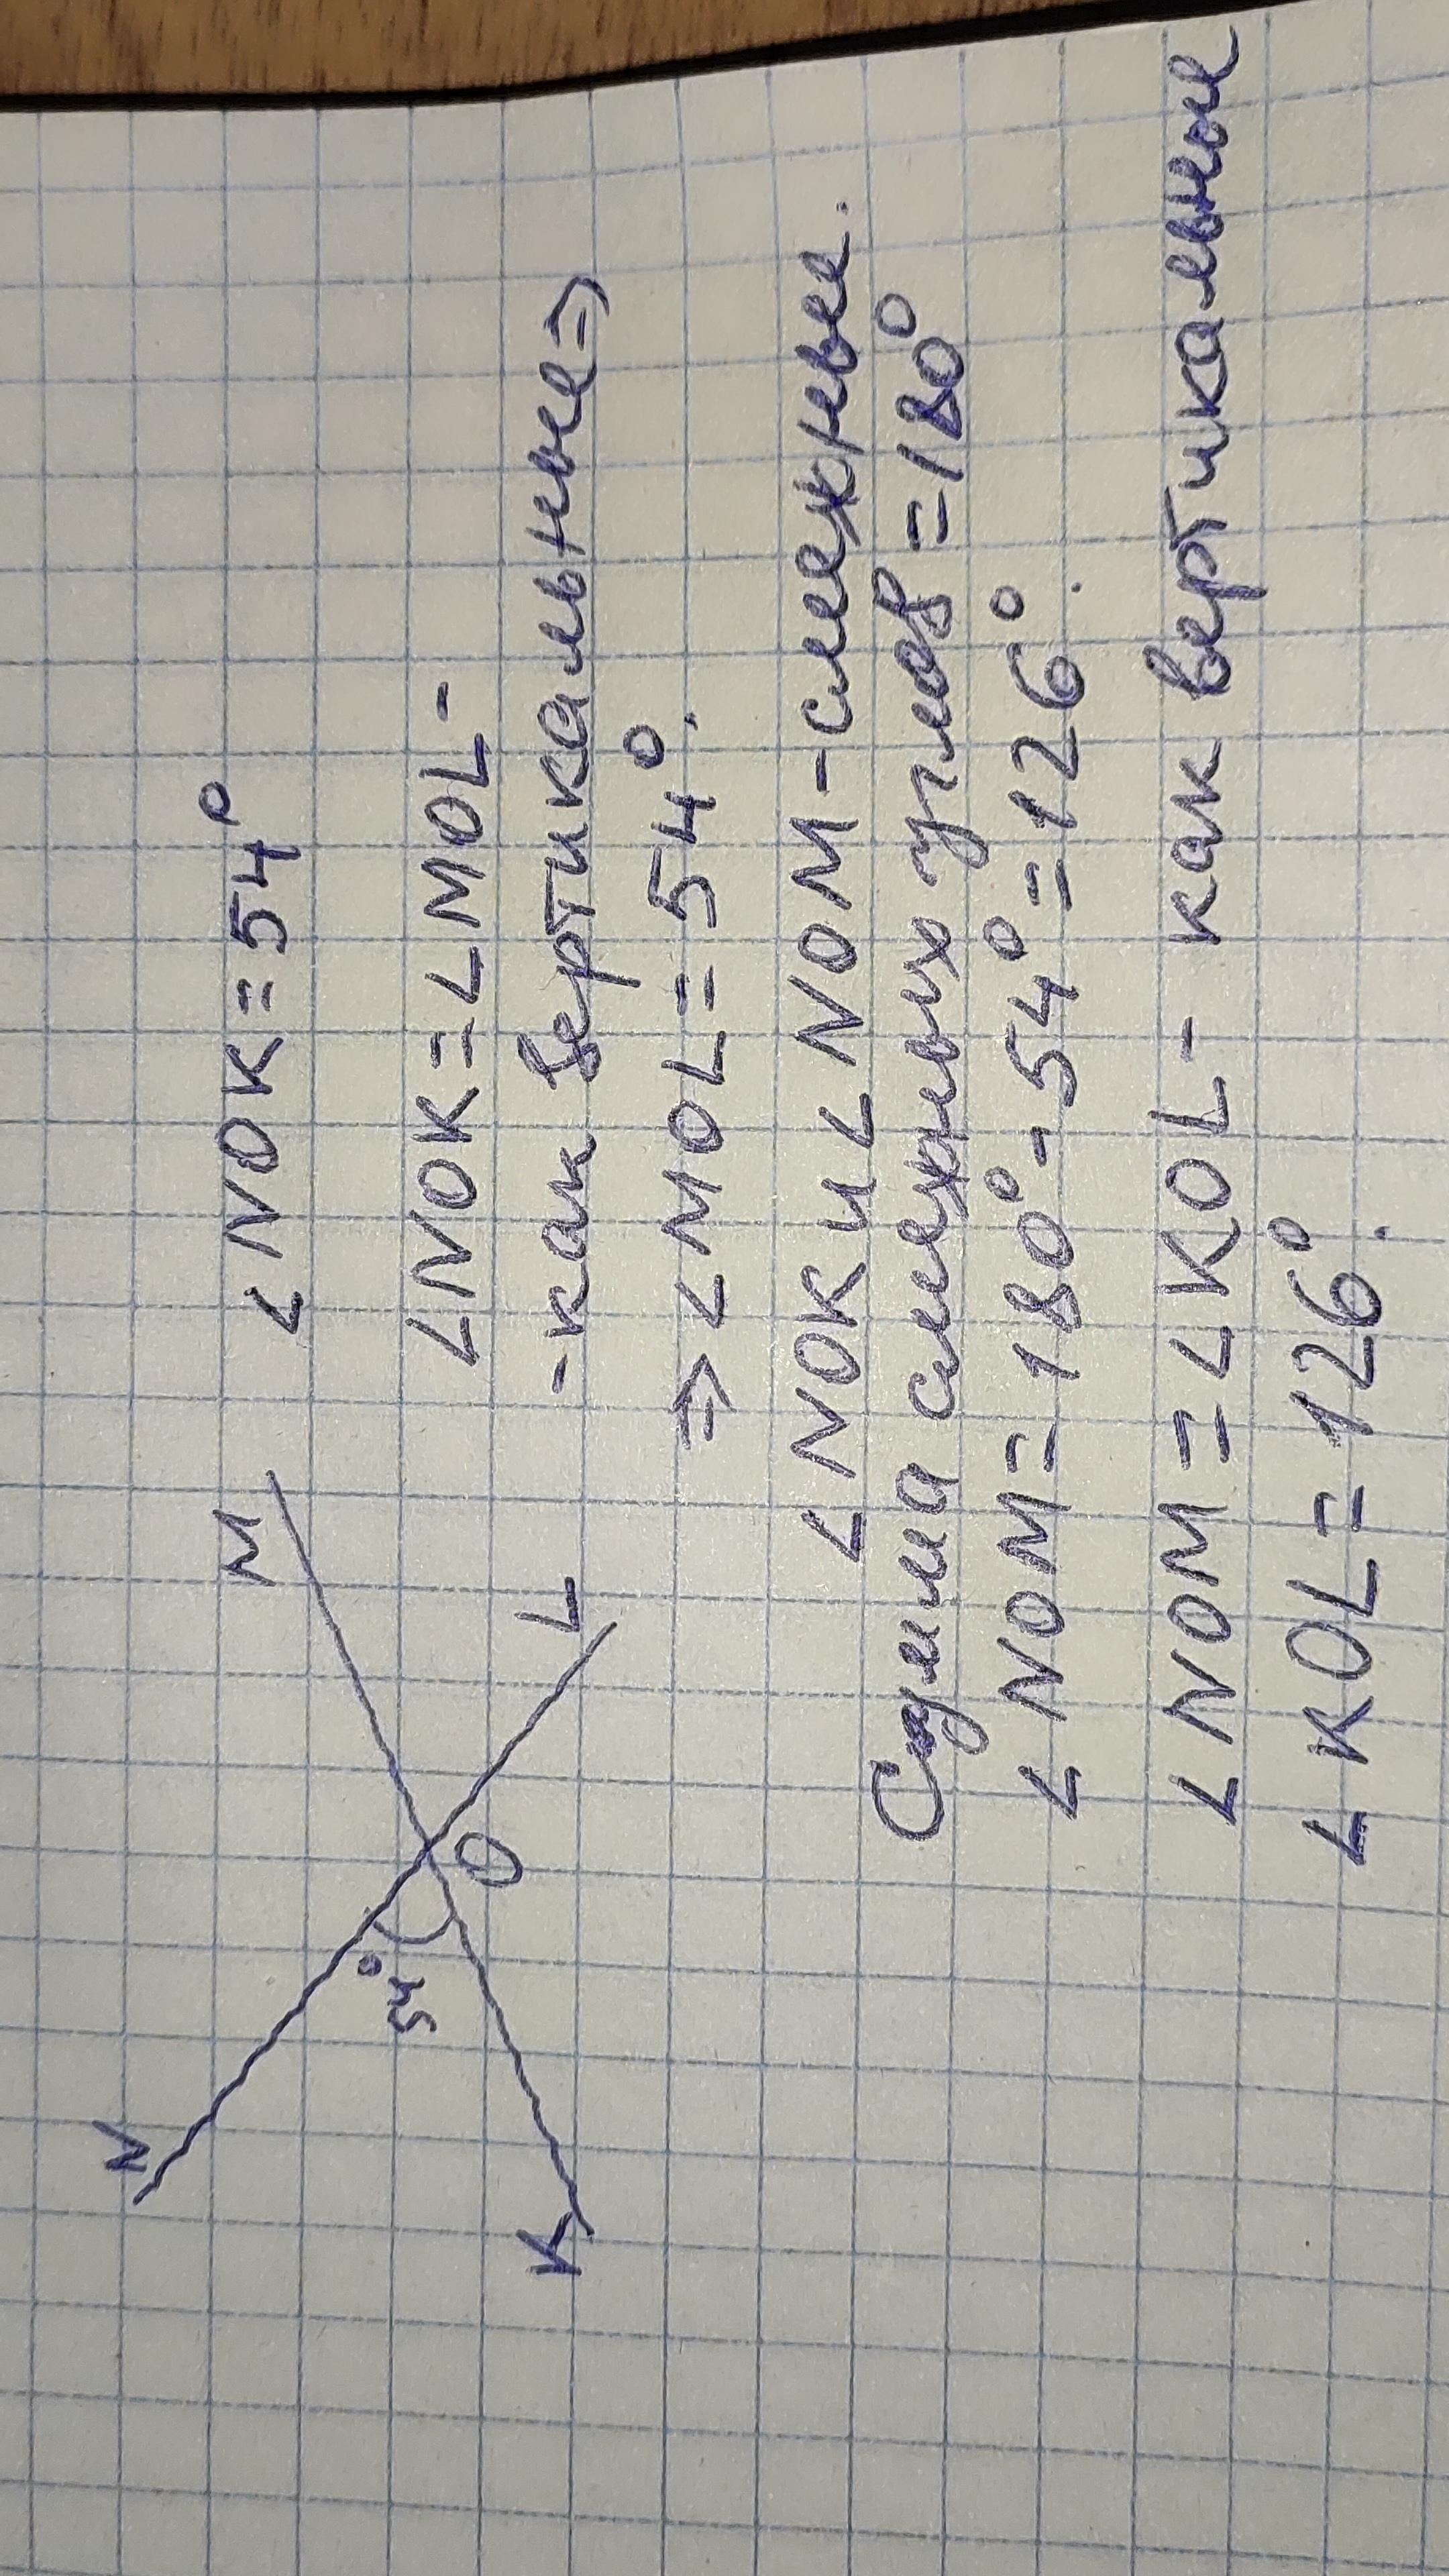 N
M
54°
O
K
L
∠NOK = 54°
∠NOK = ∠MOL -
- как вертикальные ⇒
⇒ ∠MOL = 54°.
∠NOK и ∠NOM - смежные.
Сумма смежных углов = 180°
∠NOM = 180° - 54° = 126°.
∠NOM = ∠KOL - как вертикальные
∠KOL = 126°.